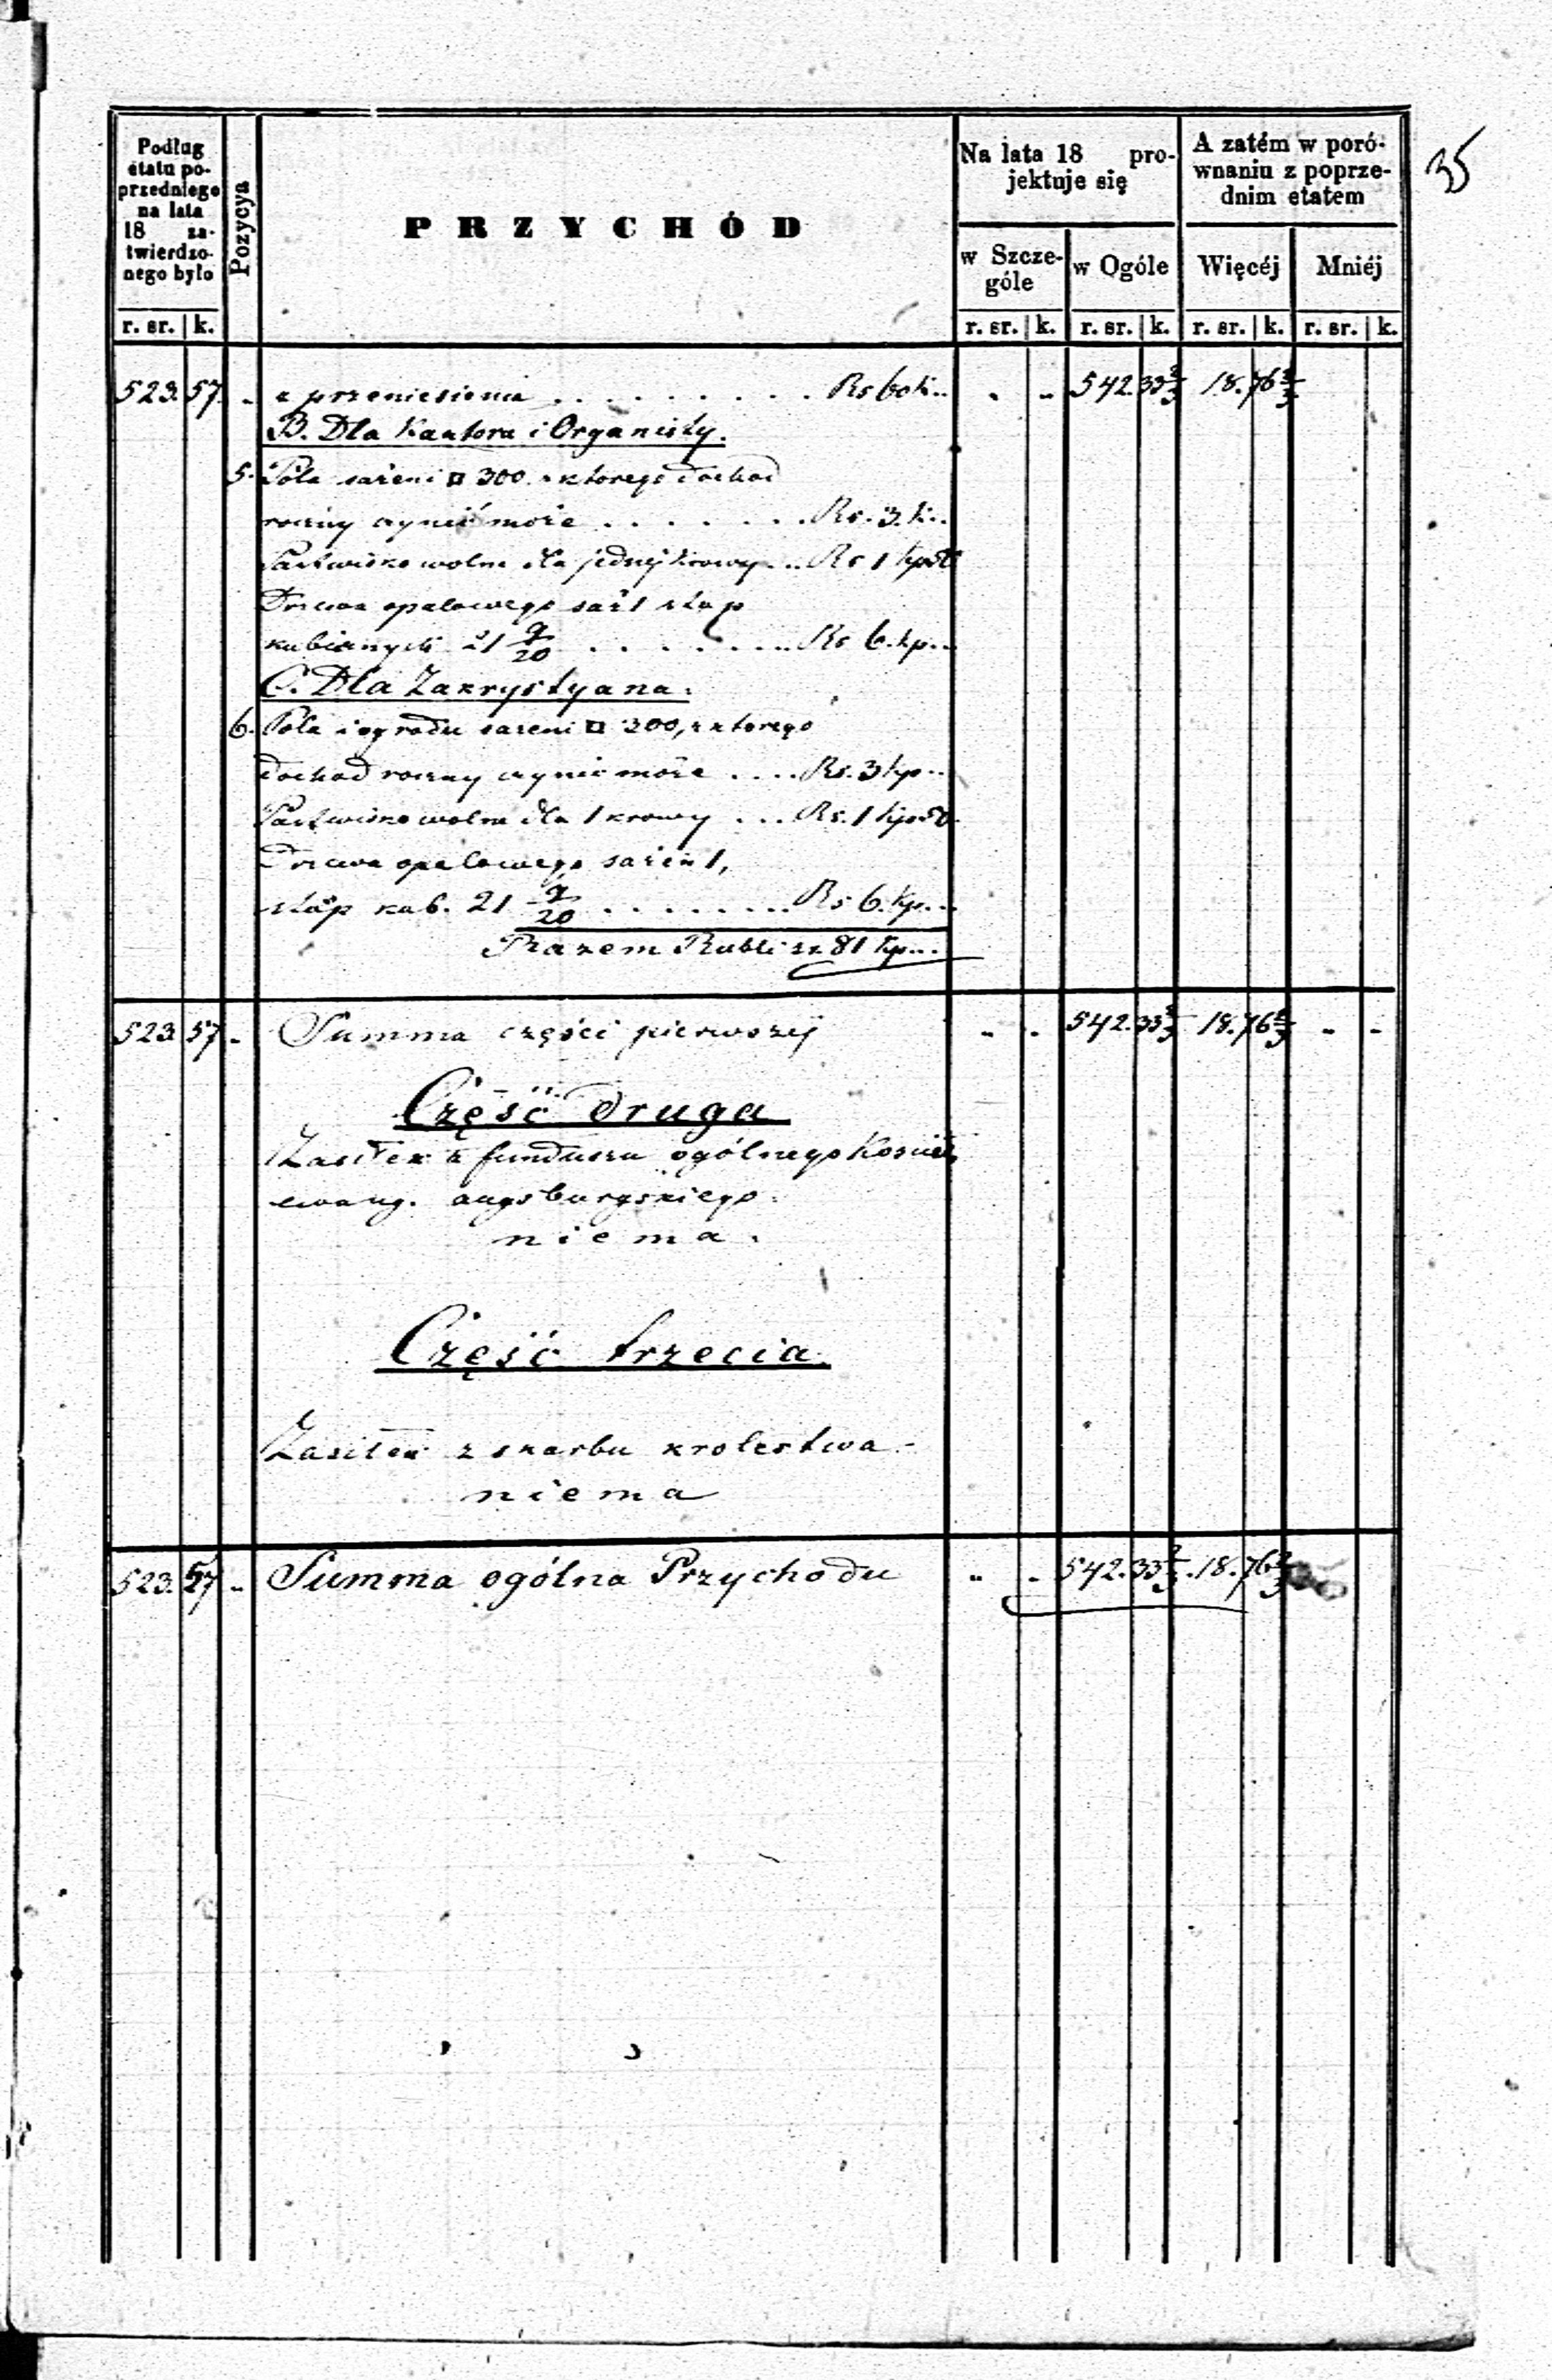 35
Podług
etatu po-
przedniego
na lata
18 za-
twierdzo-
nego było
Pozycya
PRZYCHÓD
Na lata 18 pro-
jektuje się
A zatém w poró-
wnaniu z poprze-
dnim etatem
w Szcze-
góle
w Ogóle
Więcéj
Mniéj
r. sr. k. r. sr. k. r. sr. k. r. sr. k. r. sr. k.
523. 57. - z przeniesienia . . . . . . . . . Rs 60 k.. . .. 542. 33 2/3 18. 76 2/3
B. Dla Kantora i Organisty.
5. Pola sażeni □ 300. z ktorego dochod
roczny czynić może . . . . . . . Rs. 3. k..
Pastwisko wolne dla jednej krowy . . . Rs 1 kp 50
Drzewa opałowego saż 1 stop
kubicznych 21 9/20 . . . . . . . . Rs 6. kp..
C. Dla Zakrystyana.
6. Pola i ogrodu sażeni □ 300, z ktorego
dochod roczny czynić może . . . . Rs. 3 kp..
Pastwisko wolne dla 1 krowy . . . Rs. 1 kp 50.
Drzewa opałowego sażeń 1,
stóp kub. 21 9/20 . . . . . . . . Rs 6. kp...
Razem Rubli sr 81 kp...
523. 57 - Summa części pierwszéj - . 542. 33 2/3 18. 76 2/3 - -
Część druga
Zasiłek z funduszu ogólnego Kościoła
ewang. augsburgskiego.
niema.
Część trzecia.
Zasiłek z skarbu krolestwa -
niema
523. 57 - Summa ogólna Przychodu .. - 542. 33 2/3 . 18. 76 2/3